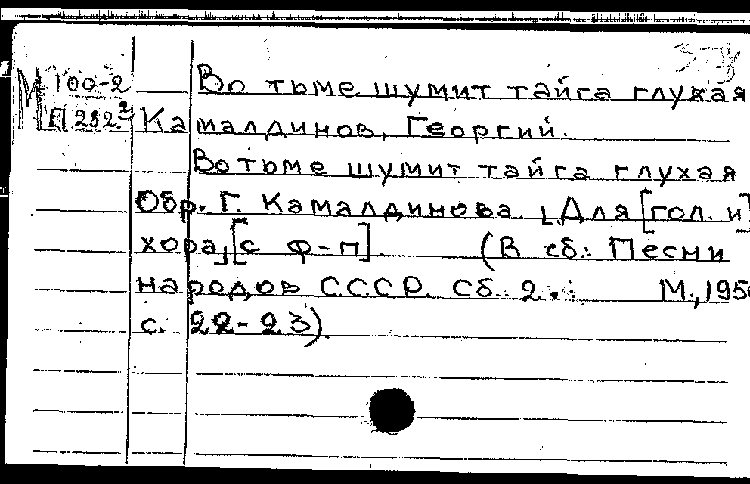 Во тьме шумит тайга глухая
М 100-2
П 282.2 Камалдинов, Георгий.
Во тьме шумит тайга глухая
Обр. Г. Камалдинова. [Для [гол. и]
хора,][с ф-п]. (В сб.: Песни
народов СССР. Сб. 2. М., 195
с. 22-23).